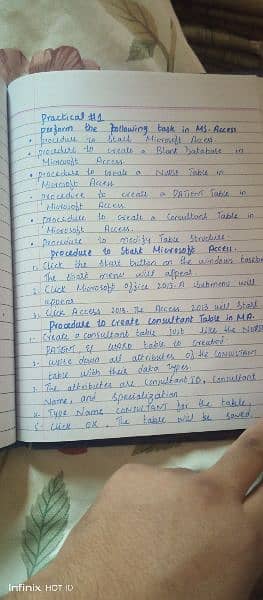 Practical #1
Perform the following task in MS-Access
• procedure to Start Microsoft Access.
• procedure to Create a Blank Database in
Microsoft Access.
• procedure to Create a Nurse Table in
Microsoft Access
procedure to create a PATIENT Table in
Microsoft Access
• procedure to Create a Consultant Table in
Microsoft Access.
• procedure to modify Table Structure.
procedure to Start Microsoft Access.
1. Click the Start button on the windows taskbar
The start menu will appear.
2. Click Microsoft Office 2013. A Submenu will
appear
3. Click Access 2013. The Access 2013 will Start
Procedure to create consultant Table in MA.
1. Create a consultant table just like the NURSE
PATIENT, & WARD table is created
2. Write down all attributes of the CONSULTANT
table with their data types
3. The attributes are Consultant ID, Consultant
Name, and Specialization
4. Type Name CONSULTANT for the table.
5. Click OK. The table will be saved.
Infinix HOT 10